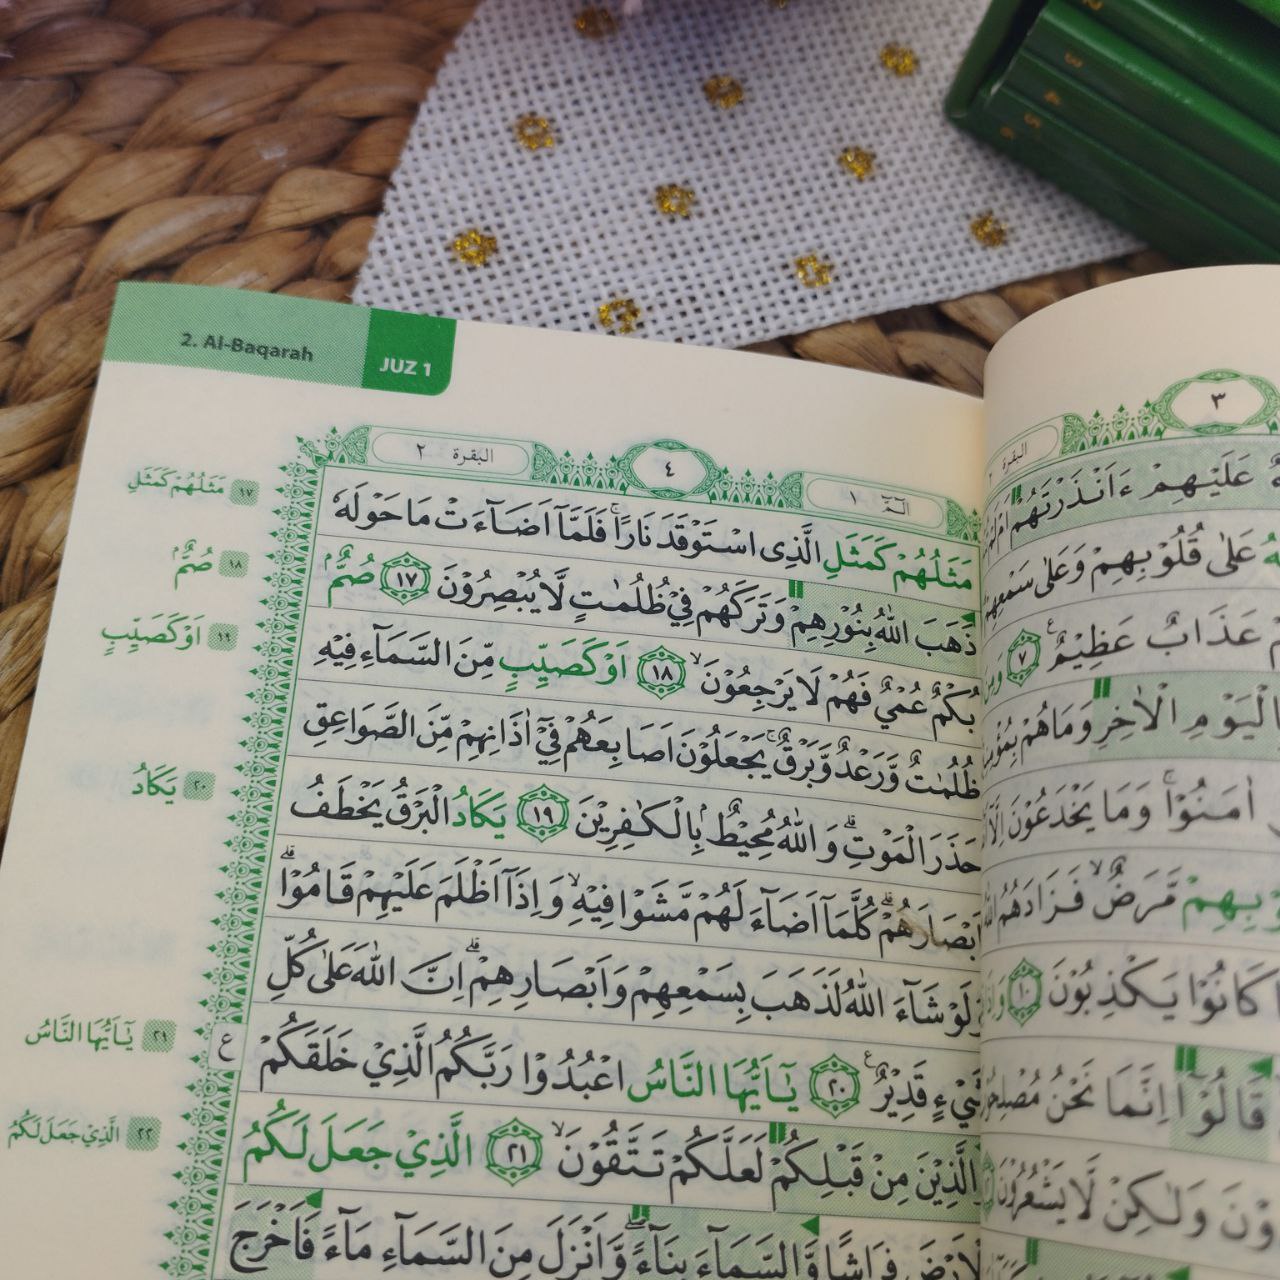 2. Al-Baqarah
JUZ 1
البقرة ٢
٤
الٓمّٓ ١
مَثَلُهُمْ كَمَثَلِ الَّذِى اسْتَوْقَدَ نَارًاۚ فَلَمَّآ اَضَاۤءَتْ مَا حَوْلَهٗ
ذَهَبَ اللّٰهُ بِنُوْرِهِمْ وَتَرَكَهُمْ فِيْ ظُلُمٰتٍ لَّا يُبْصِرُوْنَ ١٧ صُمٌّ ۢ
بُكْمٌ عُمْيٌ فَهُمْ لَا يَرْجِعُوْنَۙ ١٨ اَوْ كَصَيِّبٍ مِّنَ السَّمَاۤءِ فِيْهِ
ظُلُمٰتٌ وَّرَعْدٌ وَّبَرْقٌۚ يَجْعَلُوْنَ اَصَابِعَهُمْ فِيْٓ اٰذَانِهِمْ مِّنَ الصَّوَاعِقِ
حَذَرَ الْمَوْتِۗ وَاللّٰهُ مُحِيْطٌ ۢ بِالْكٰفِرِيْنَ ١٩ يَكَادُ الْبَرْقُ يَخْطَفُ
اَبْصَارَهُمْۗ كُلَّمَآ اَضَاۤءَ لَهُمْ مَّشَوْا فِيْهِۙ وَاِذَآ اَظْلَمَ عَلَيْهِمْ قَامُوْاۗ
لَوْ شَاۤءَ اللّٰهُ لَذَهَبَ بِسَمْعِهِمْ وَاَبْصَارِهِمْۗ اِنَّ اللّٰهَ عَلٰى كُلِّ
شَيْءٍ قَدِيْرٌࣖ ٢٠ يٰٓاَيُّهَا النَّاسُ اعْبُدُوْا رَبَّكُمُ الَّذِيْ خَلَقَكُمْ
ع
الَّذِيْنَ مِنْ قَبْلِكُمْ لَعَلَّكُمْ تَتَّقُوْنَۙ ٢١ الَّذِيْ جَعَلَ لَكُمُ
فِرَاشًا وَّالسَّمَاۤءَ بِنَاۤءًۖ وَّاَنْزَلَ مِنَ السَّمَاۤءِ مَاۤءً فَاَخْرَجَ
١٧ مَثَلُهُمْ كَمَثَلِ
١٨ صُمٌّ ۢ
١٩ اَوْ كَصَيِّبٍ
٢٠ يَكَادُ
٢١ يٰٓاَيُّهَا النَّاسُ
٢٢ الَّذِيْ جَعَلَ لَكُمُ
٣
البقرة ٢
عَلَيْهِمْ ءَاَنْذَرْتَهُمْ
عَلٰى قُلُوْبِهِمْ وَعَلٰى سَمْعِهِمْ
عَذَابٌ عَظِيْمٌࣖ ٧
الْيَوْمِ الْاٰخِرِ وَمَا هُمْ
اٰمَنُوْاۚ وَمَا يَخْدَعُوْنَ
مَّرَضٌۙ فَزَادَهُمُ
كَانُوْا يَكْذِبُوْنَ ١٠
قَالُوْٓا اِنَّمَا نَحْنُ
وَلٰكِنْ لَّا يَشْعُرُوْنَ
2
3
4
5
6